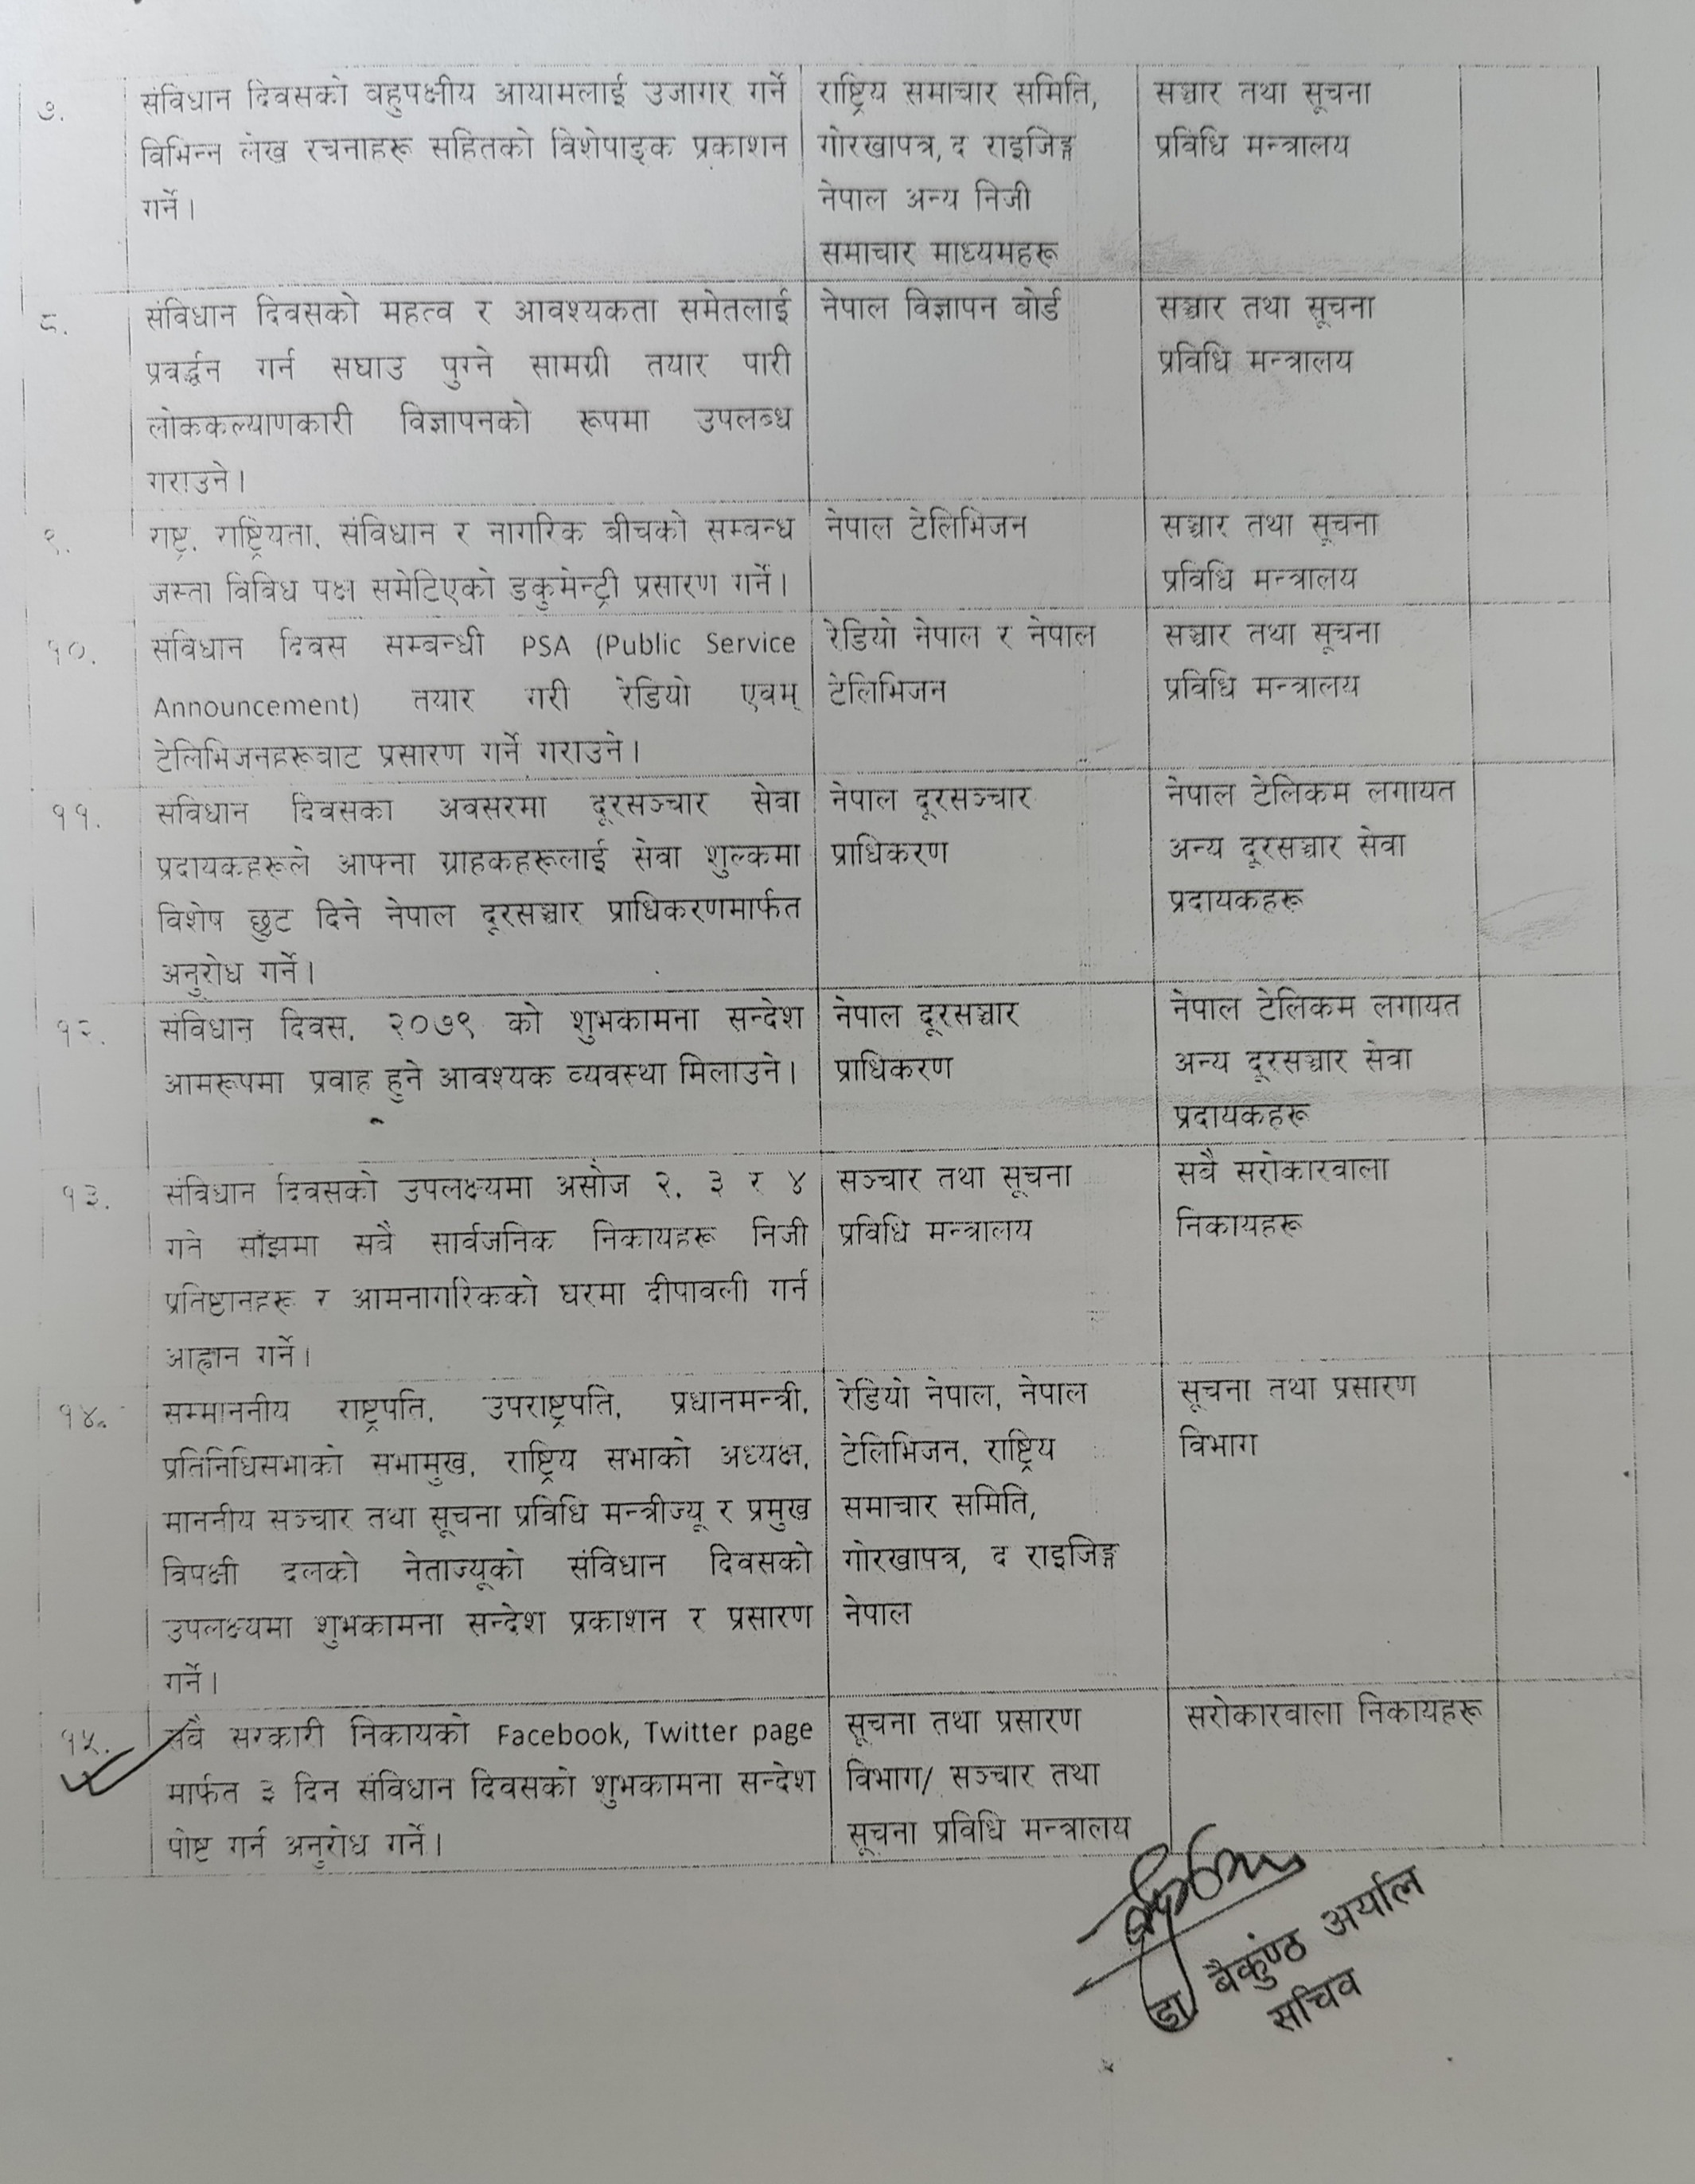 ७.
संविधान दिवसको बहुपक्षीय आयामलाई उजागर गर्ने
विभिन्न लेख रचनाहरू सहितको विशेषाङ्क प्रकाशन
गर्ने।
राष्ट्रिय समाचार समिति,
गोरखापत्र, द राइजिङ्ग
नेपाल अन्य निजी
समाचार माध्यमहरू
सञ्चार तथा सूचना
प्रविधि मन्त्रालय
८.
संविधान दिवसको महत्व र आवश्यकता समेतलाई
प्रवर्द्धन गर्न सघाउ पुग्ने सामग्री तयार पारी
लोककल्याणकारी विज्ञापनको रूपमा उपलब्ध
गराउने।
नेपाल विज्ञापन बोर्ड
सञ्चार तथा सूचना
प्रविधि मन्त्रालय
९.
राष्ट्र, राष्ट्रियता, संविधान र नागरिक बीचको सम्बन्ध
जस्ता विविध पक्ष समेटिएको डकुमेन्ट्री प्रसारण गर्ने।
नेपाल टेलिभिजन
सञ्चार तथा सूचना
प्रविधि मन्त्रालय
१०.
संविधान दिवस सम्बन्धी PSA (Public Service
Announcement) तयार गरी रेडियो एवम्
टेलिभिजनहरूबाट प्रसारण गर्ने गराउने।
रेडियो नेपाल र नेपाल
टेलिभिजन
सञ्चार तथा सूचना
प्रविधि मन्त्रालय
११.
संविधान दिवसका अवसरमा दूरसञ्चार सेवा
प्रदायकहरूले आफ्ना ग्राहकहरूलाई सेवा शुल्कमा
विशेष छुट दिने नेपाल दूरसञ्चार प्राधिकरणमार्फत
अनुरोध गर्ने।
नेपाल दूरसञ्चार
प्राधिकरण
नेपाल टेलिकम लगायत
अन्य दूरसञ्चार सेवा
प्रदायकहरू
१२.
संविधान दिवस, २०७९ को शुभकामना सन्देश
आमरूपमा प्रवाह हुने आवश्यक व्यवस्था मिलाउने।
नेपाल दूरसञ्चार
प्राधिकरण
नेपाल टेलिकम लगायत
अन्य दूरसञ्चार सेवा
प्रदायकहरू
१३.
संविधान दिवसको उपलक्ष्यमा असोज २, ३ र ४
गते साँझमा सबै सार्वजनिक निकायहरू निजी
प्रतिष्टानहरू र आमनागरिकको घरमा दीपावली गर्न
आह्वान गर्ने।
सञ्चार तथा सूचना
प्रविधि मन्त्रालय
सबै सरोकारवाला
निकायहरू
१४.
सम्माननीय राष्ट्रपति, उपराष्ट्रपति, प्रधानमन्त्री,
प्रतिनिधिसभाको सभामुख, राष्ट्रिय सभाको अध्यक्ष,
माननीय सञ्चार तथा सूचना प्रविधि मन्त्रीज्यू र प्रमुख
विपक्षी दलको नेताज्यूको संविधान दिवसको
उपलक्ष्यमा शुभकामना सन्देश प्रकाशन र प्रसारण
गर्ने।
रेडियो नेपाल, नेपाल
टेलिभिजन, राष्ट्रिय
समाचार समिति,
गोरखापत्र, द राइजिङ्ग
नेपाल
सूचना तथा प्रसारण
विभाग
१५.
सबै सरकारी निकायको Facebook, Twitter page
मार्फत ३ दिन संविधान दिवसको शुभकामना सन्देश
पोष्ट गर्न अनुरोध गर्ने।
सूचना तथा प्रसारण
विभाग/ सञ्चार तथा
सूचना प्रविधि मन्त्रालय
सरोकारवाला निकायहरू
डा. बैकुण्ठ अर्याल
सचिव